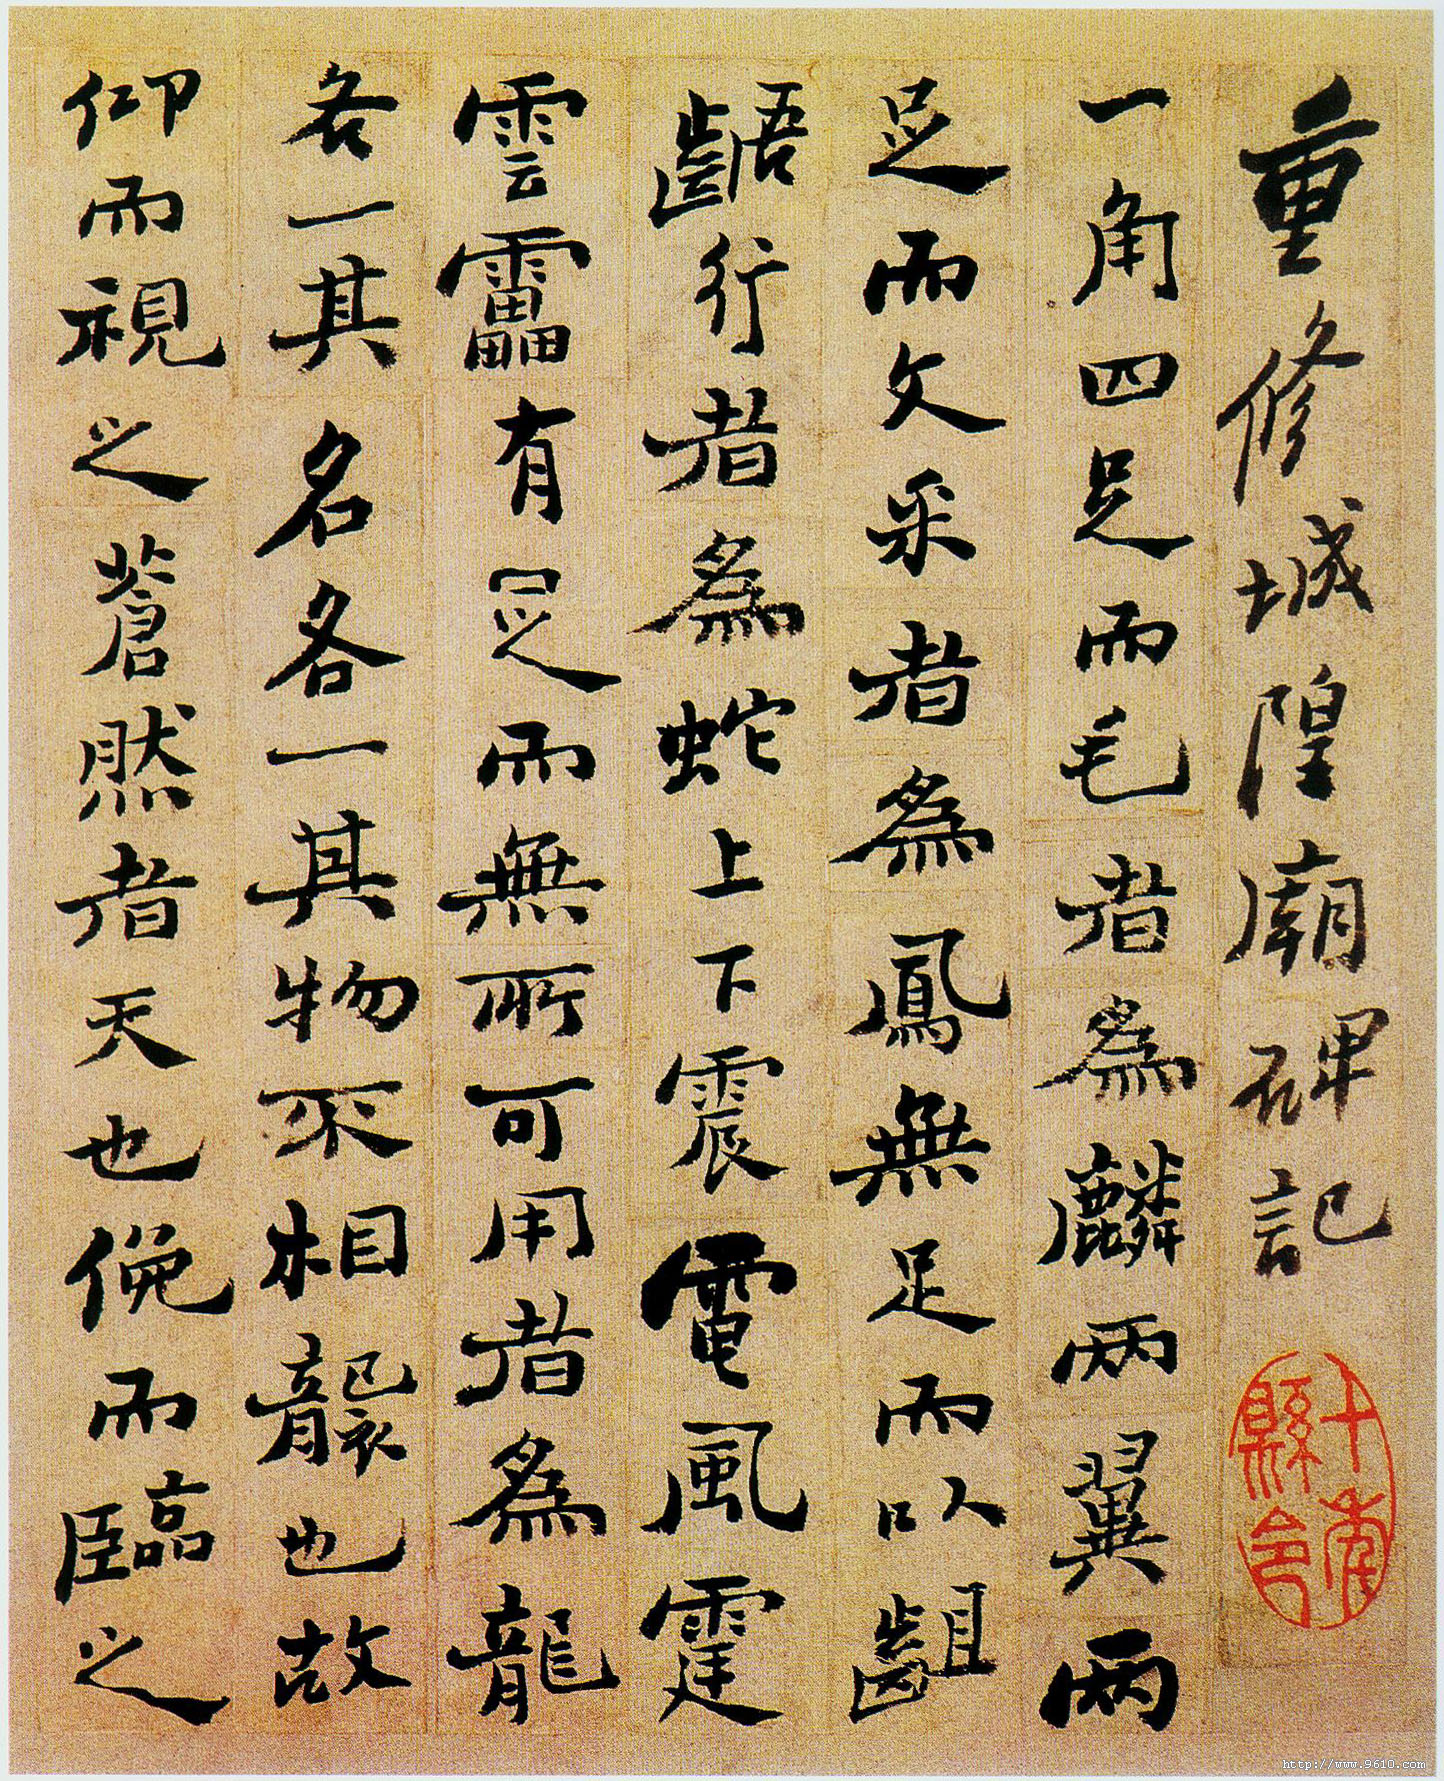 重修城隍廟碑記
一角四足而毛者為麟兩翼兩
足而文采者為鳳無足而以齟
齬行者為蛇上下震電風霆
雲靁有足而無所可用者為龍
各一其名各一其物不相襲也故
仰而視之蒼然者天也俛而臨之
十年縣令
http://www.9610.com